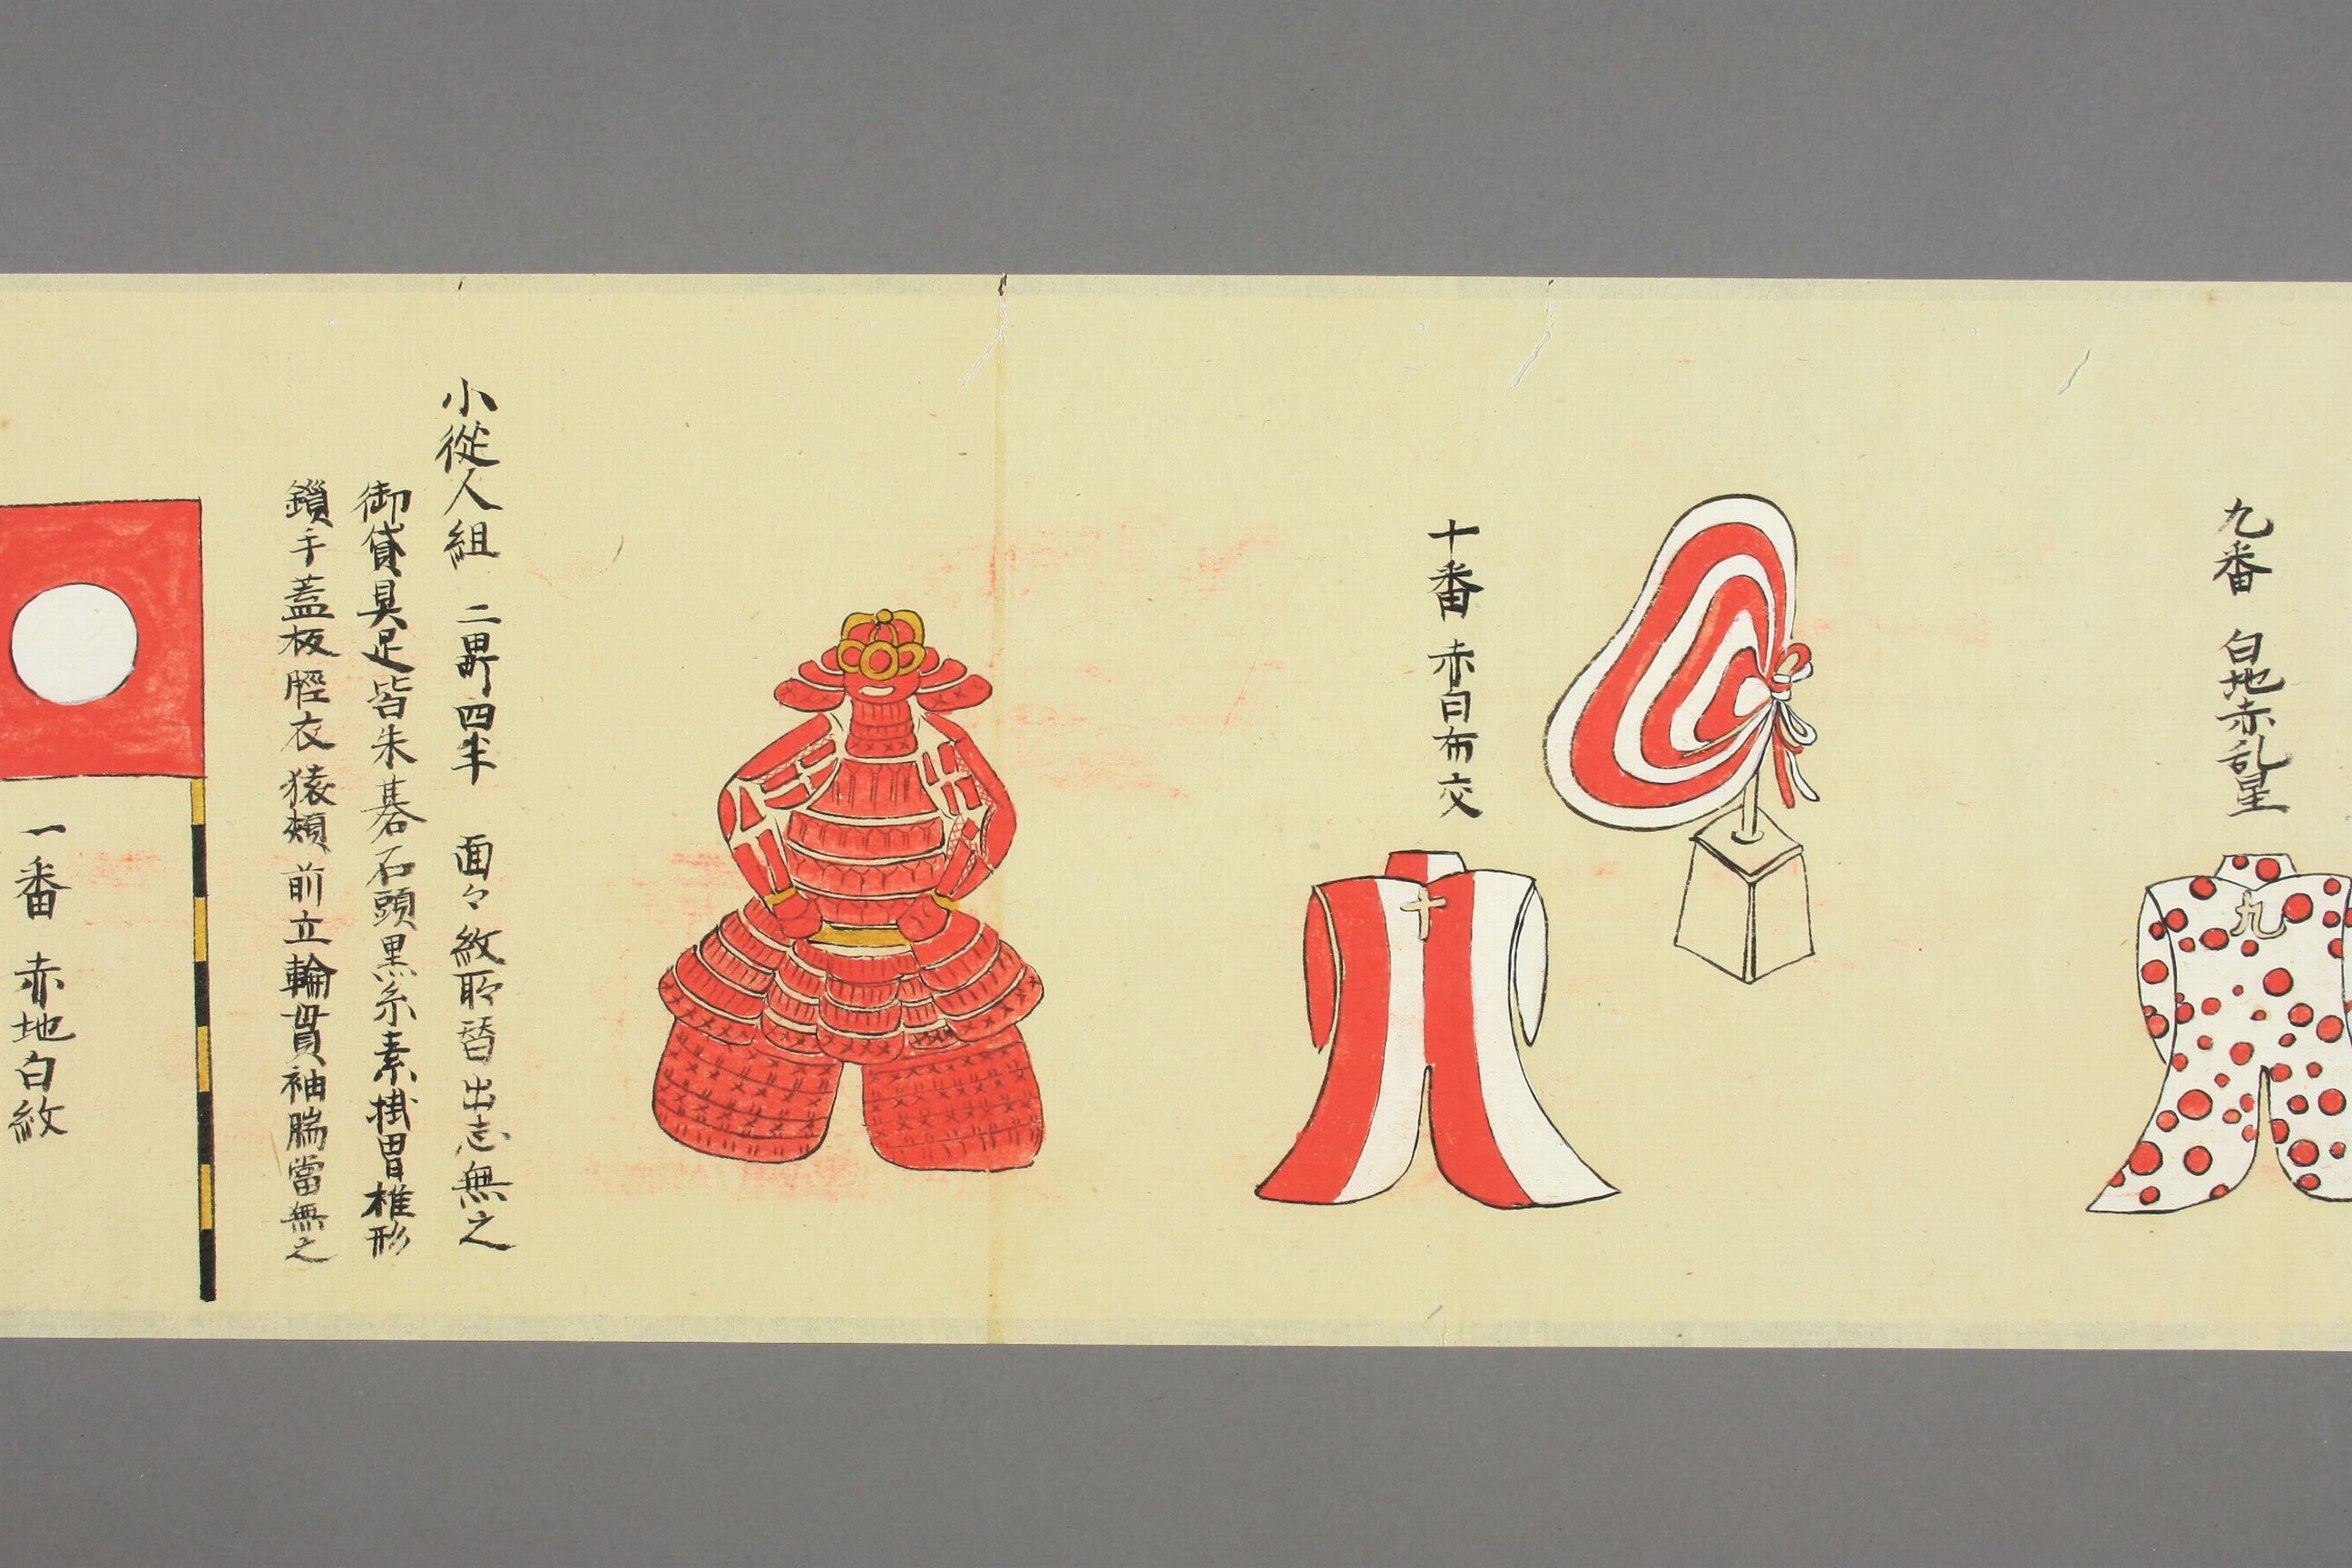 九番 白地赤乱星
九
十番 赤白布交
十
小從人組 二 四半 面々紋所替出志無之
御貸具足皆朱碁石頭黒糸素掛冑椎形
鎖手蓋板脛衣猿頬前立輪貫袖腨當無之
一番 赤地白紋